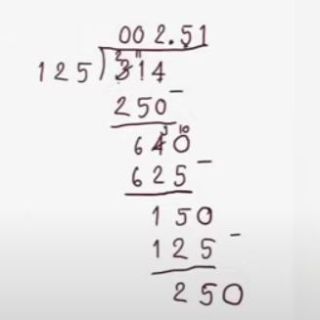 002.51
125)314
250-
640
625-
150
125-
250